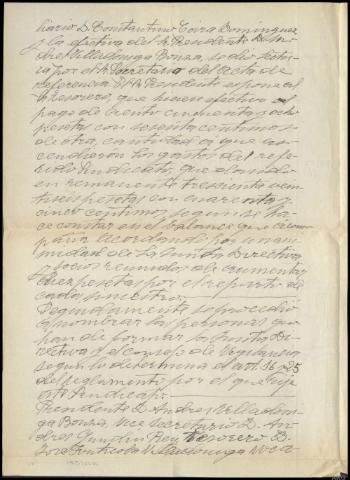 nario D. Constantino Coira Dominguez
y la efectiva del Sr. Presidente D. An
drés Villadóniga Bouza, se dio lectu-
ra por el Sr. Secretario del Acta de
referencia. El Sr. Presidente expone al
Sr. Tesorero, que hiciera efectivo el
pago de ciento cincuenta y ocho
pesetas con sesenta centimos
de otra, cantidad a que as-
cendieron los gastos del refe-
rido Sindicato, quedando
en remanente trescientas vein
tiseis pesetas con cuarenta y
cinco centimos segun se ha-
ce constar en el balance que acom
paña. Acordando por unani
midad de la Junta Directiva
y socios reunidos de aumentar
tres pesetas por el reparto de
cada siniestro.
Seguidamente se procedió
a nombrar las personas que
han de formar la Junta Di-
rectiva y el Consejo de Vigilancia
segun lo determina el art. 16 y 25
del reglamento por el que rije
este Sindicato.
Presidente D. Andres Villadoni-
ga Bouza, Vice Secretario D. An
dres Rey Tesorero D.
José Villadoniga Voca